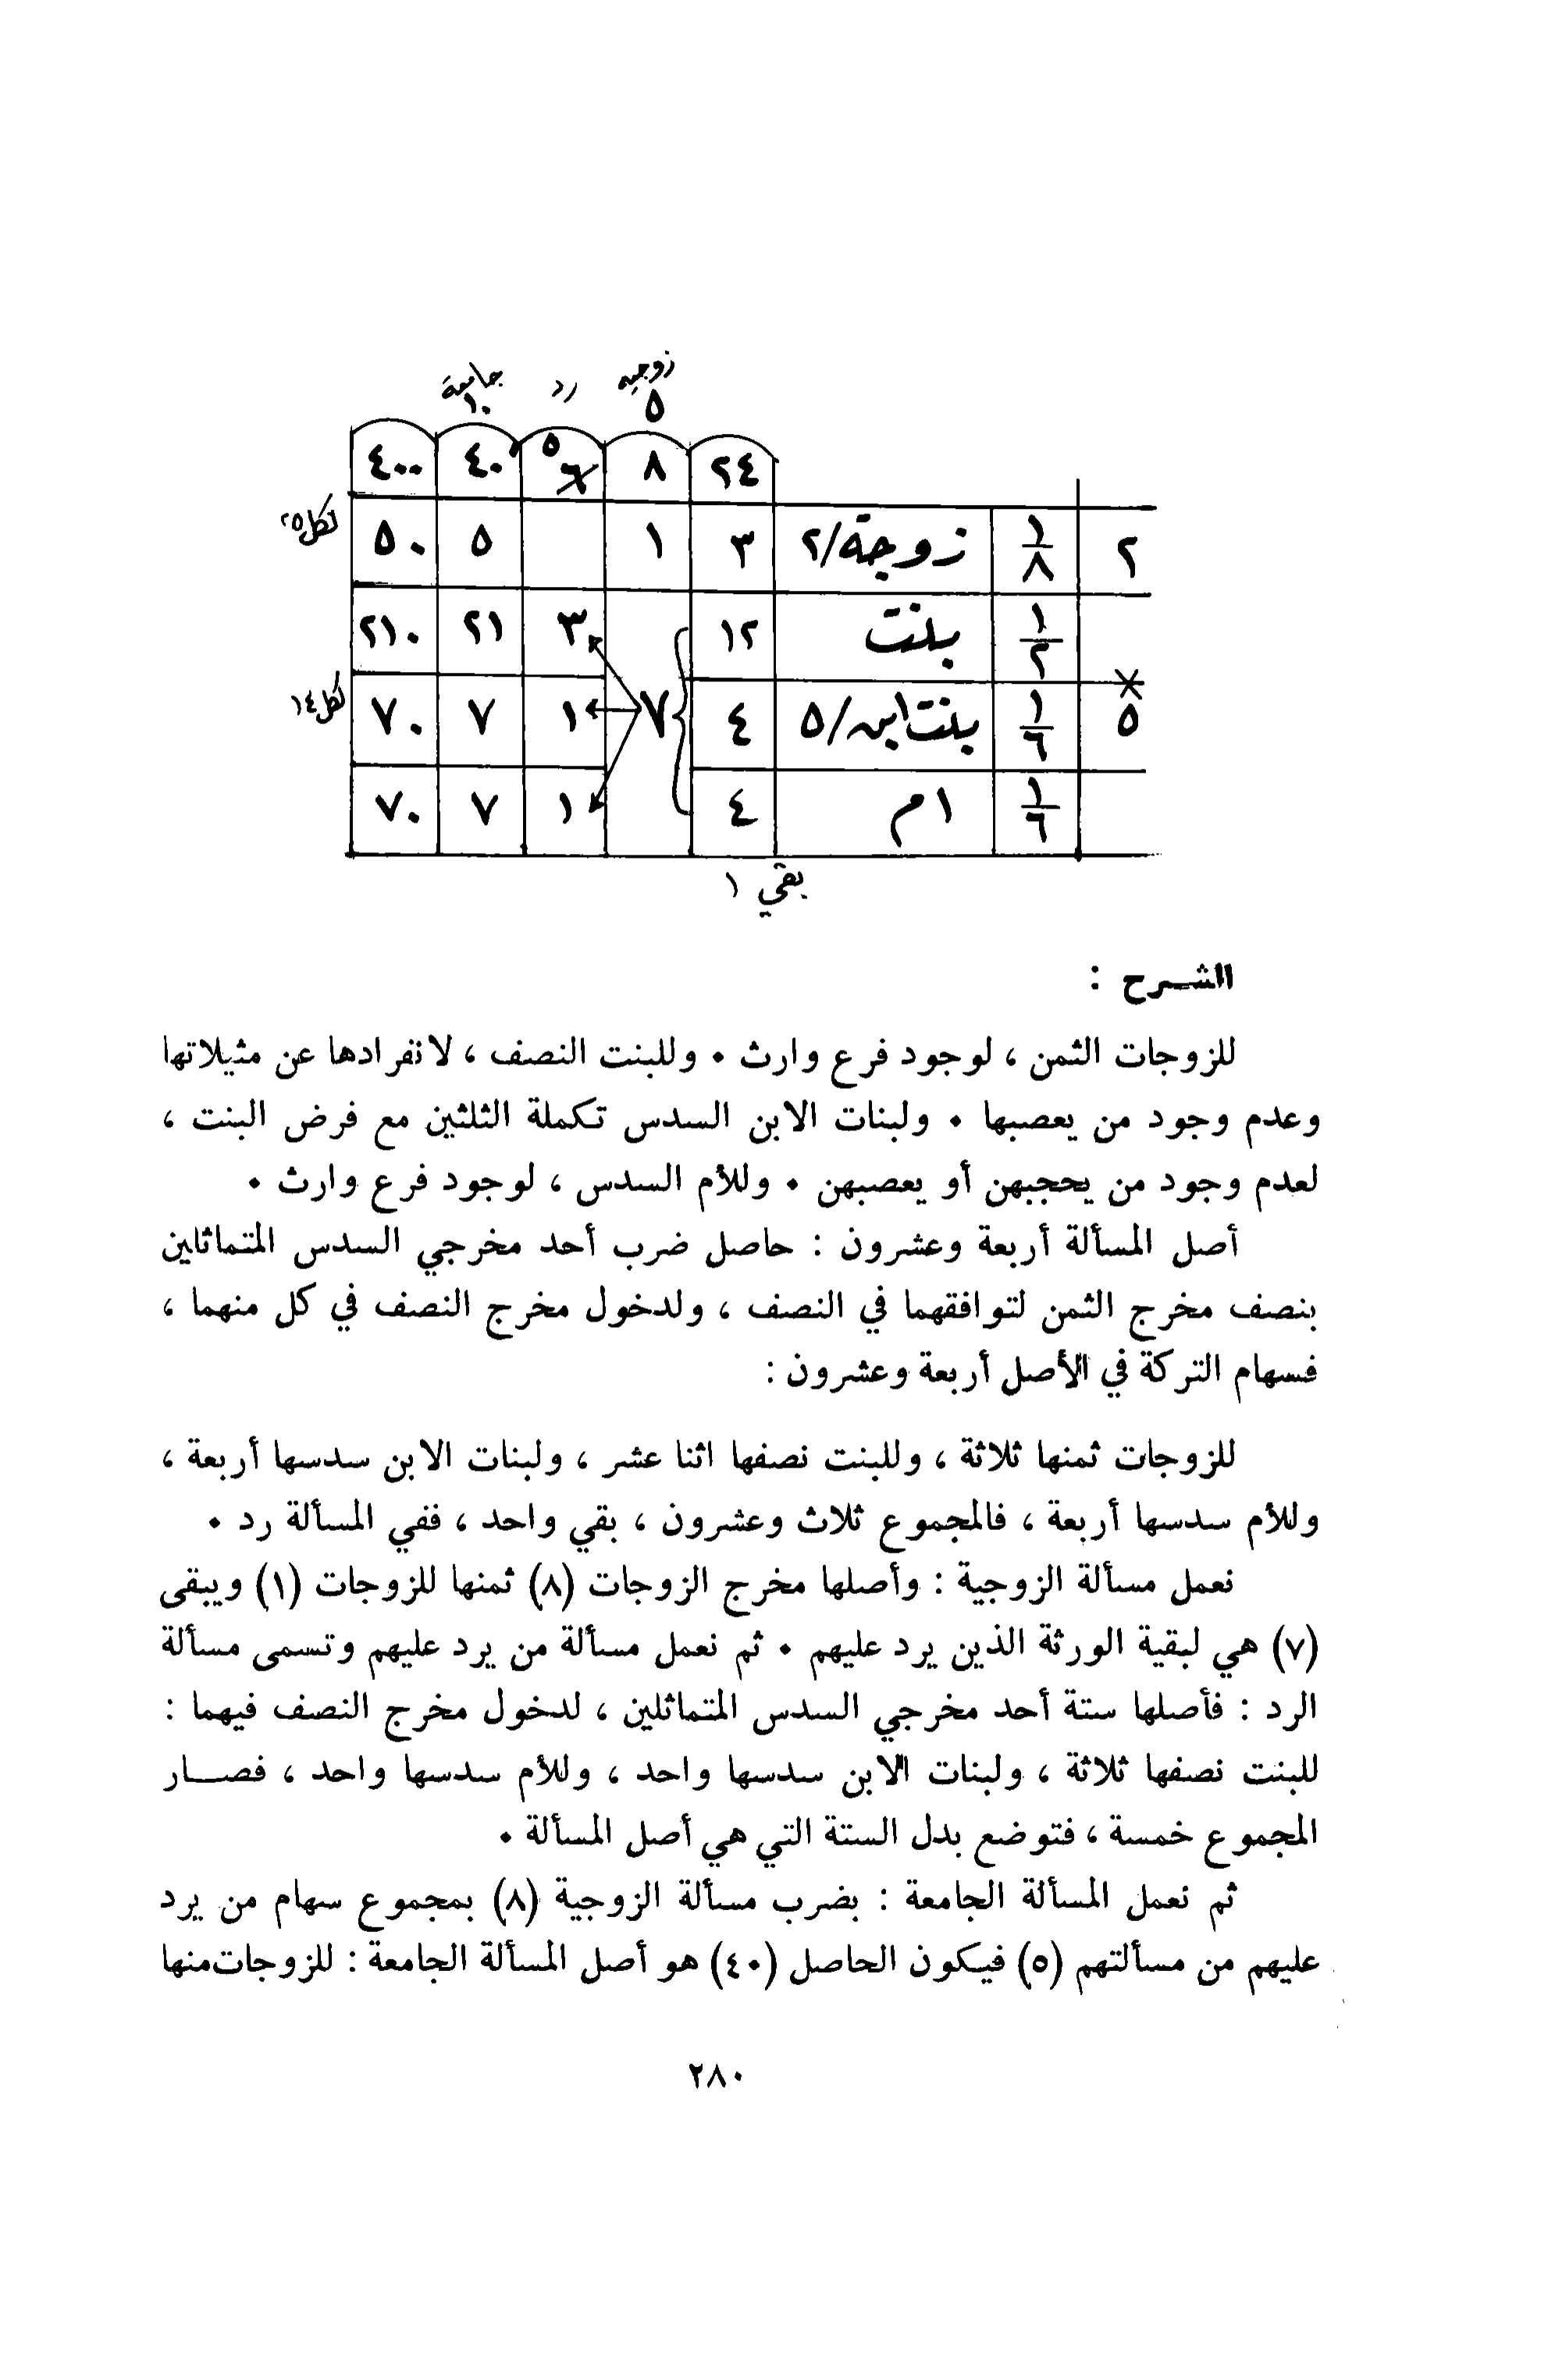 زوجيه رد جامعة
٥ ١٠
٢٤ ٨ ٥ ٦ ٤٠ ٤٠٠
٢ ١/٨ زوجة/٢ ٣ ١ ٥ ٥٠ لكل ٢٥
١/٢ بنت ١٢ ٣ ٢١ ٢١٠
× ٥ ١/٦ بنت ابن/٥ ٤ ٧ ١ ٧ ٧٠ لكل ١٤
١/٦ ام ٤ ١ ٧ ٧٠
بقي ١
الشرح :
للزوجات الثمن ، لوجود فرع وارث . وللبنت النصف ، لانفرادها عن مثيلاتها
وعدم وجود من يعصبها . ولبنات الابن السدس تكملة الثلثين مع فرض البنت ،
لعدم وجود من يحجبهن أو يعصبهن . وللأم السدس ، لوجود فرع وارث .
أصل المسألة أربعة وعشرون : حاصل ضرب أحد مخرجي السدس المتماثلين
بنصف مخرج الثمن لتوافقهما في النصف ، ولدخول مخرج النصف في كل منهما ،
فسهام التركة في الأصل أربعة وعشرون :
للزوجات ثمنها ثلاثة ، وللبنت نصفها اثنا عشر ، ولبنات الابن سدسها أربعة ،
وللأم سدسها أربعة ، فالمجموع ثلاث وعشرون ، بقي واحد ، ففي المسألة رد .
نعمل مسألة الزوجية : وأصلها مخرج الزوجات (٨) ثمنها للزوجات (١) ويبقى
(٧) هي لبقية الورثة الذين يرد عليهم . ثم نعمل مسألة من يرد عليهم وتسمى مسألة
الرد : فأصلها ستة أحد مخرجي السدس المتماثلين ، لدخول مخرج النصف فيهما :
للبنت نصفها ثلاثة ، ولبنات الابن سدسها واحد ، وللأم سدسها واحد ، فصــار
المجموع خمسة ، فتوضع بدل الستة التي هي أصل المسألة .
ثم نعمل المسألة الجامعة : بضرب مسألة الزوجية (٨) بمجموع سهام من يرد
عليهم من مسألتهم (٥) فيكون الحاصل (٤٠) هو أصل المسألة الجامعة : للزوجات منها
٢٨٠